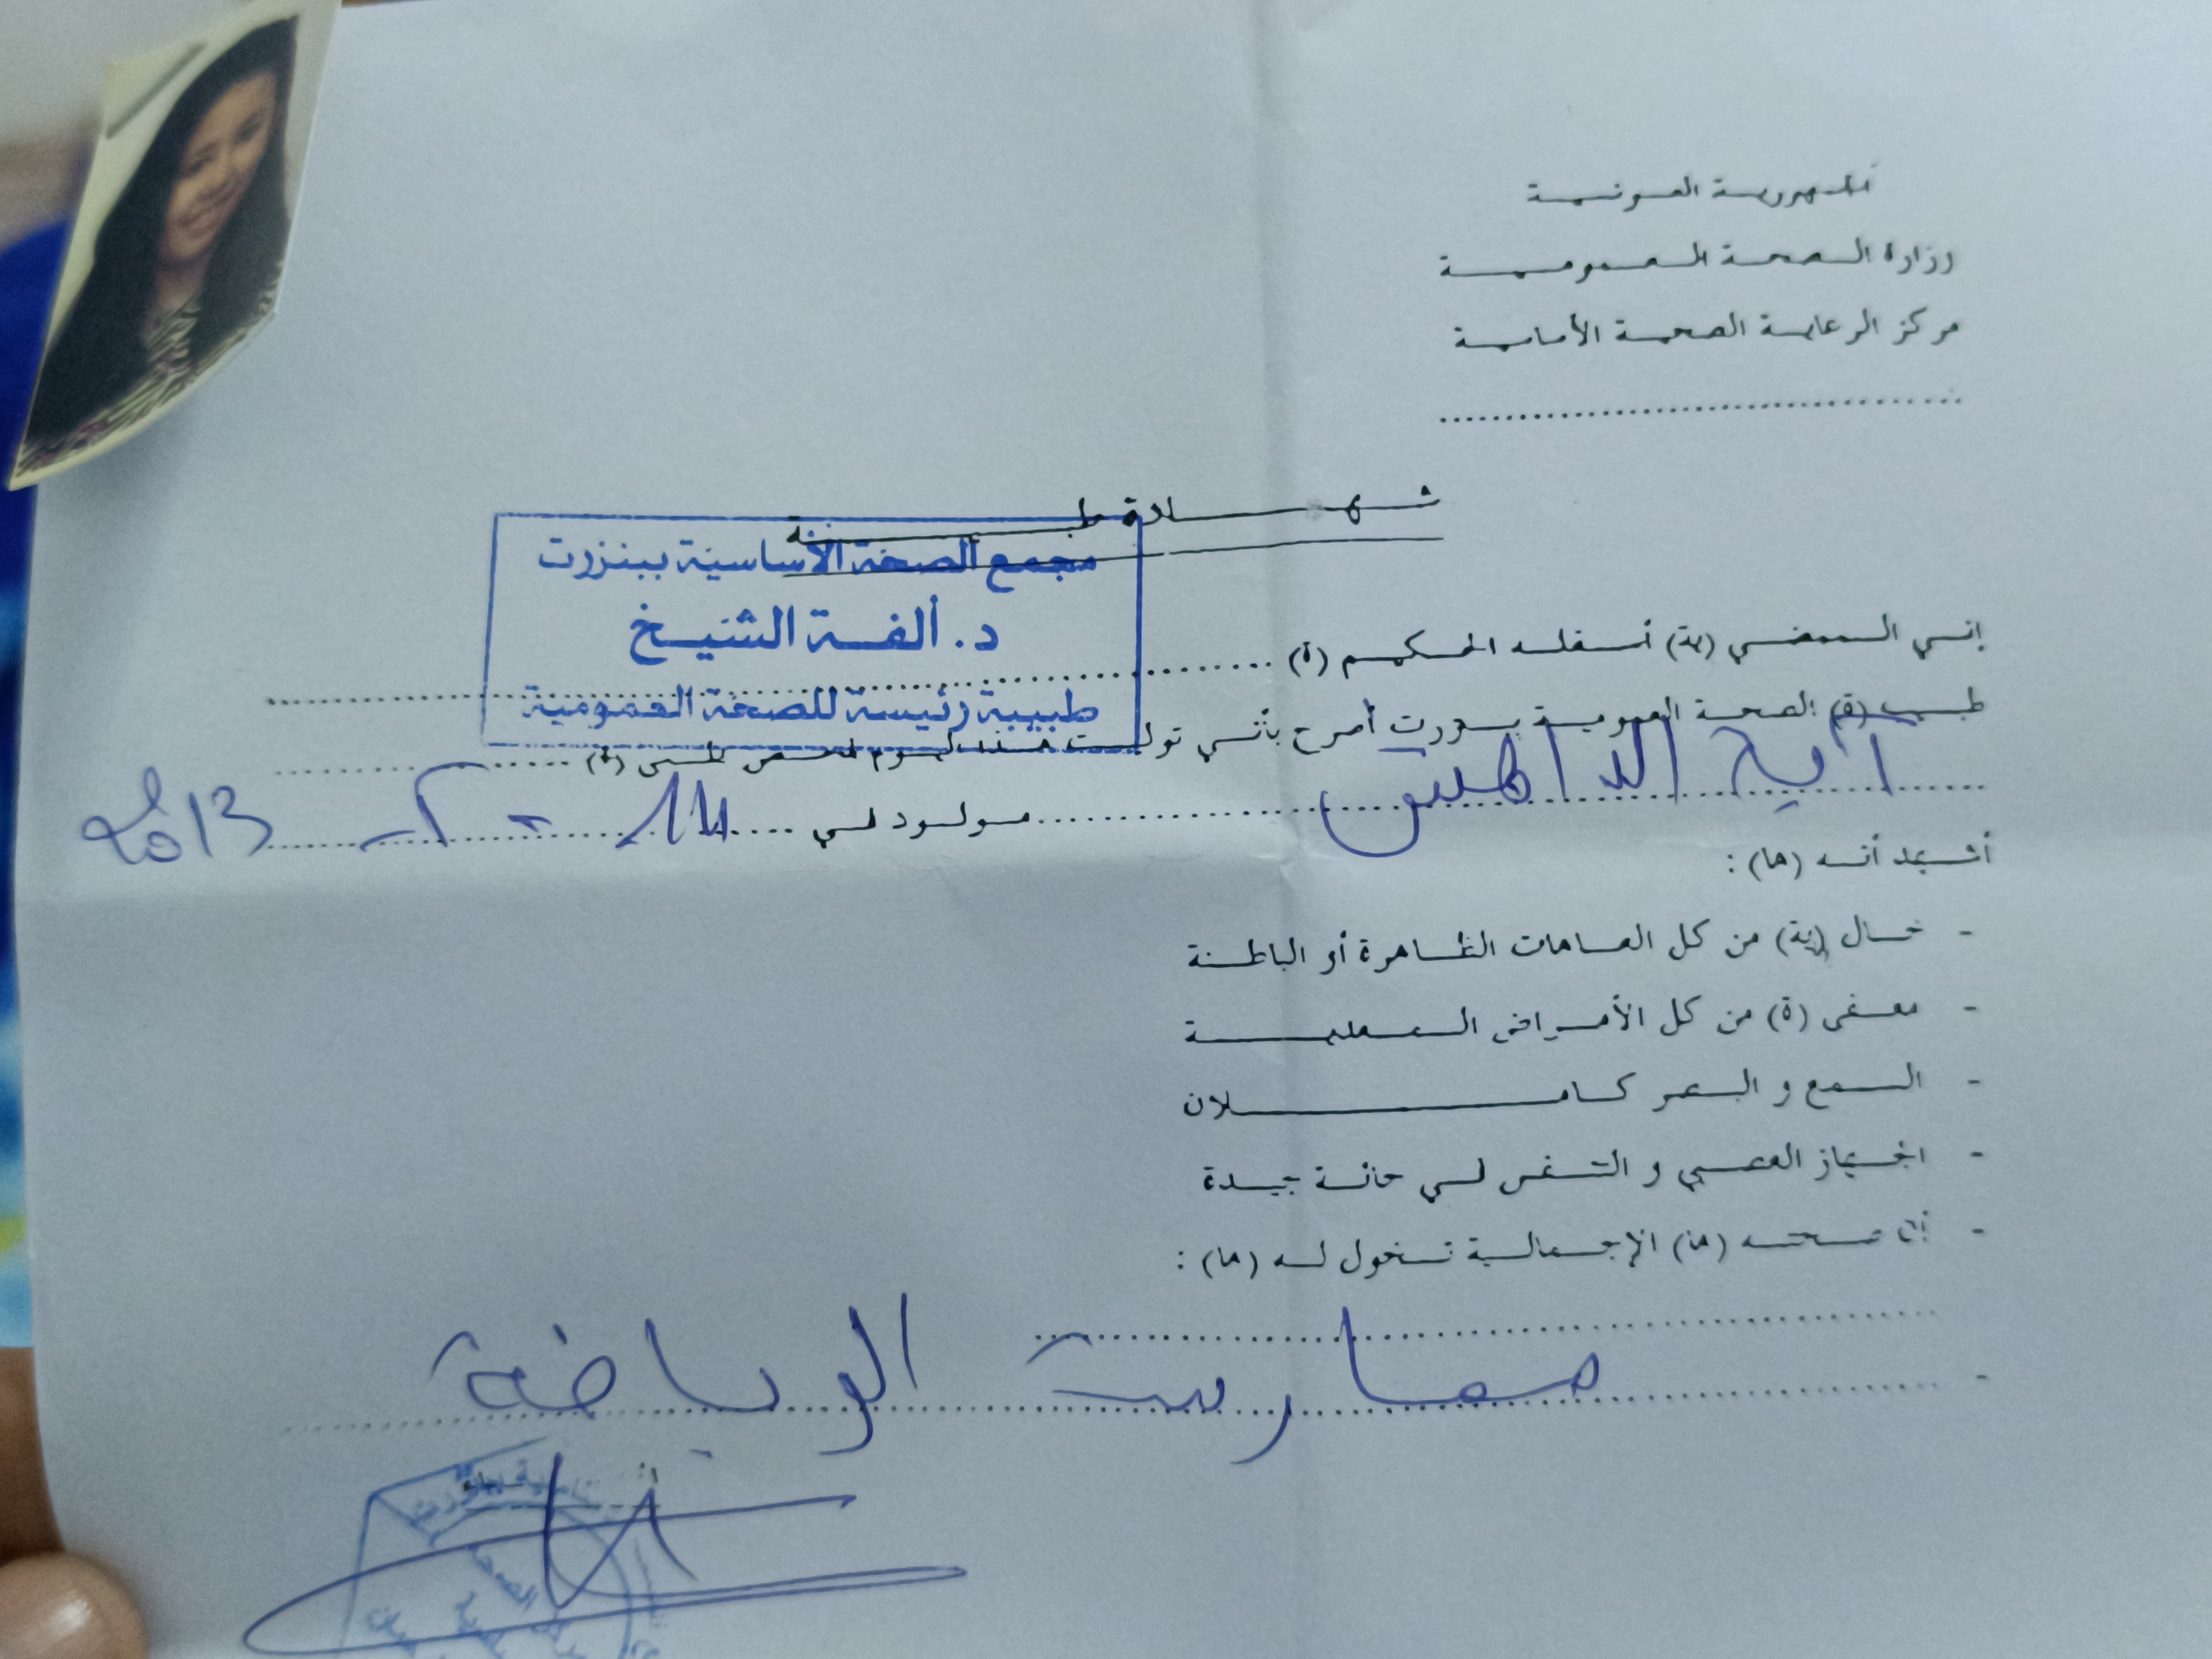 الجمهورية التونسية
وزارة الصحة العمومية
مركز الرعاية الصحية الأساسية
شهادة طبية
مجمع الصحة الأساسية ببنزرت
د. ألفة الشيخ
طبيبة رئيسة للصحة العمومية
إني الممضي (ية) أسفله الحكيم (ة)
طبيب (ة) الصحة العمومية بـ أصرح بأنني توليت هذا اليوم لفحص طبي (ة)
آية مولود في 14 - 2 - 2013
أشهد أنه (ها) :
- خال (ية) من كل العاهات الظاهرة أو الباطنة
- معفى (ة) من كل الأمراض المعدية
- السمع و البصر كاملان
- الجهاز العصبي و التنفس في حالة جيدة
- أن صحته (ها) الإجمالية تخول له (ها) :
- ممارسة الرياضة